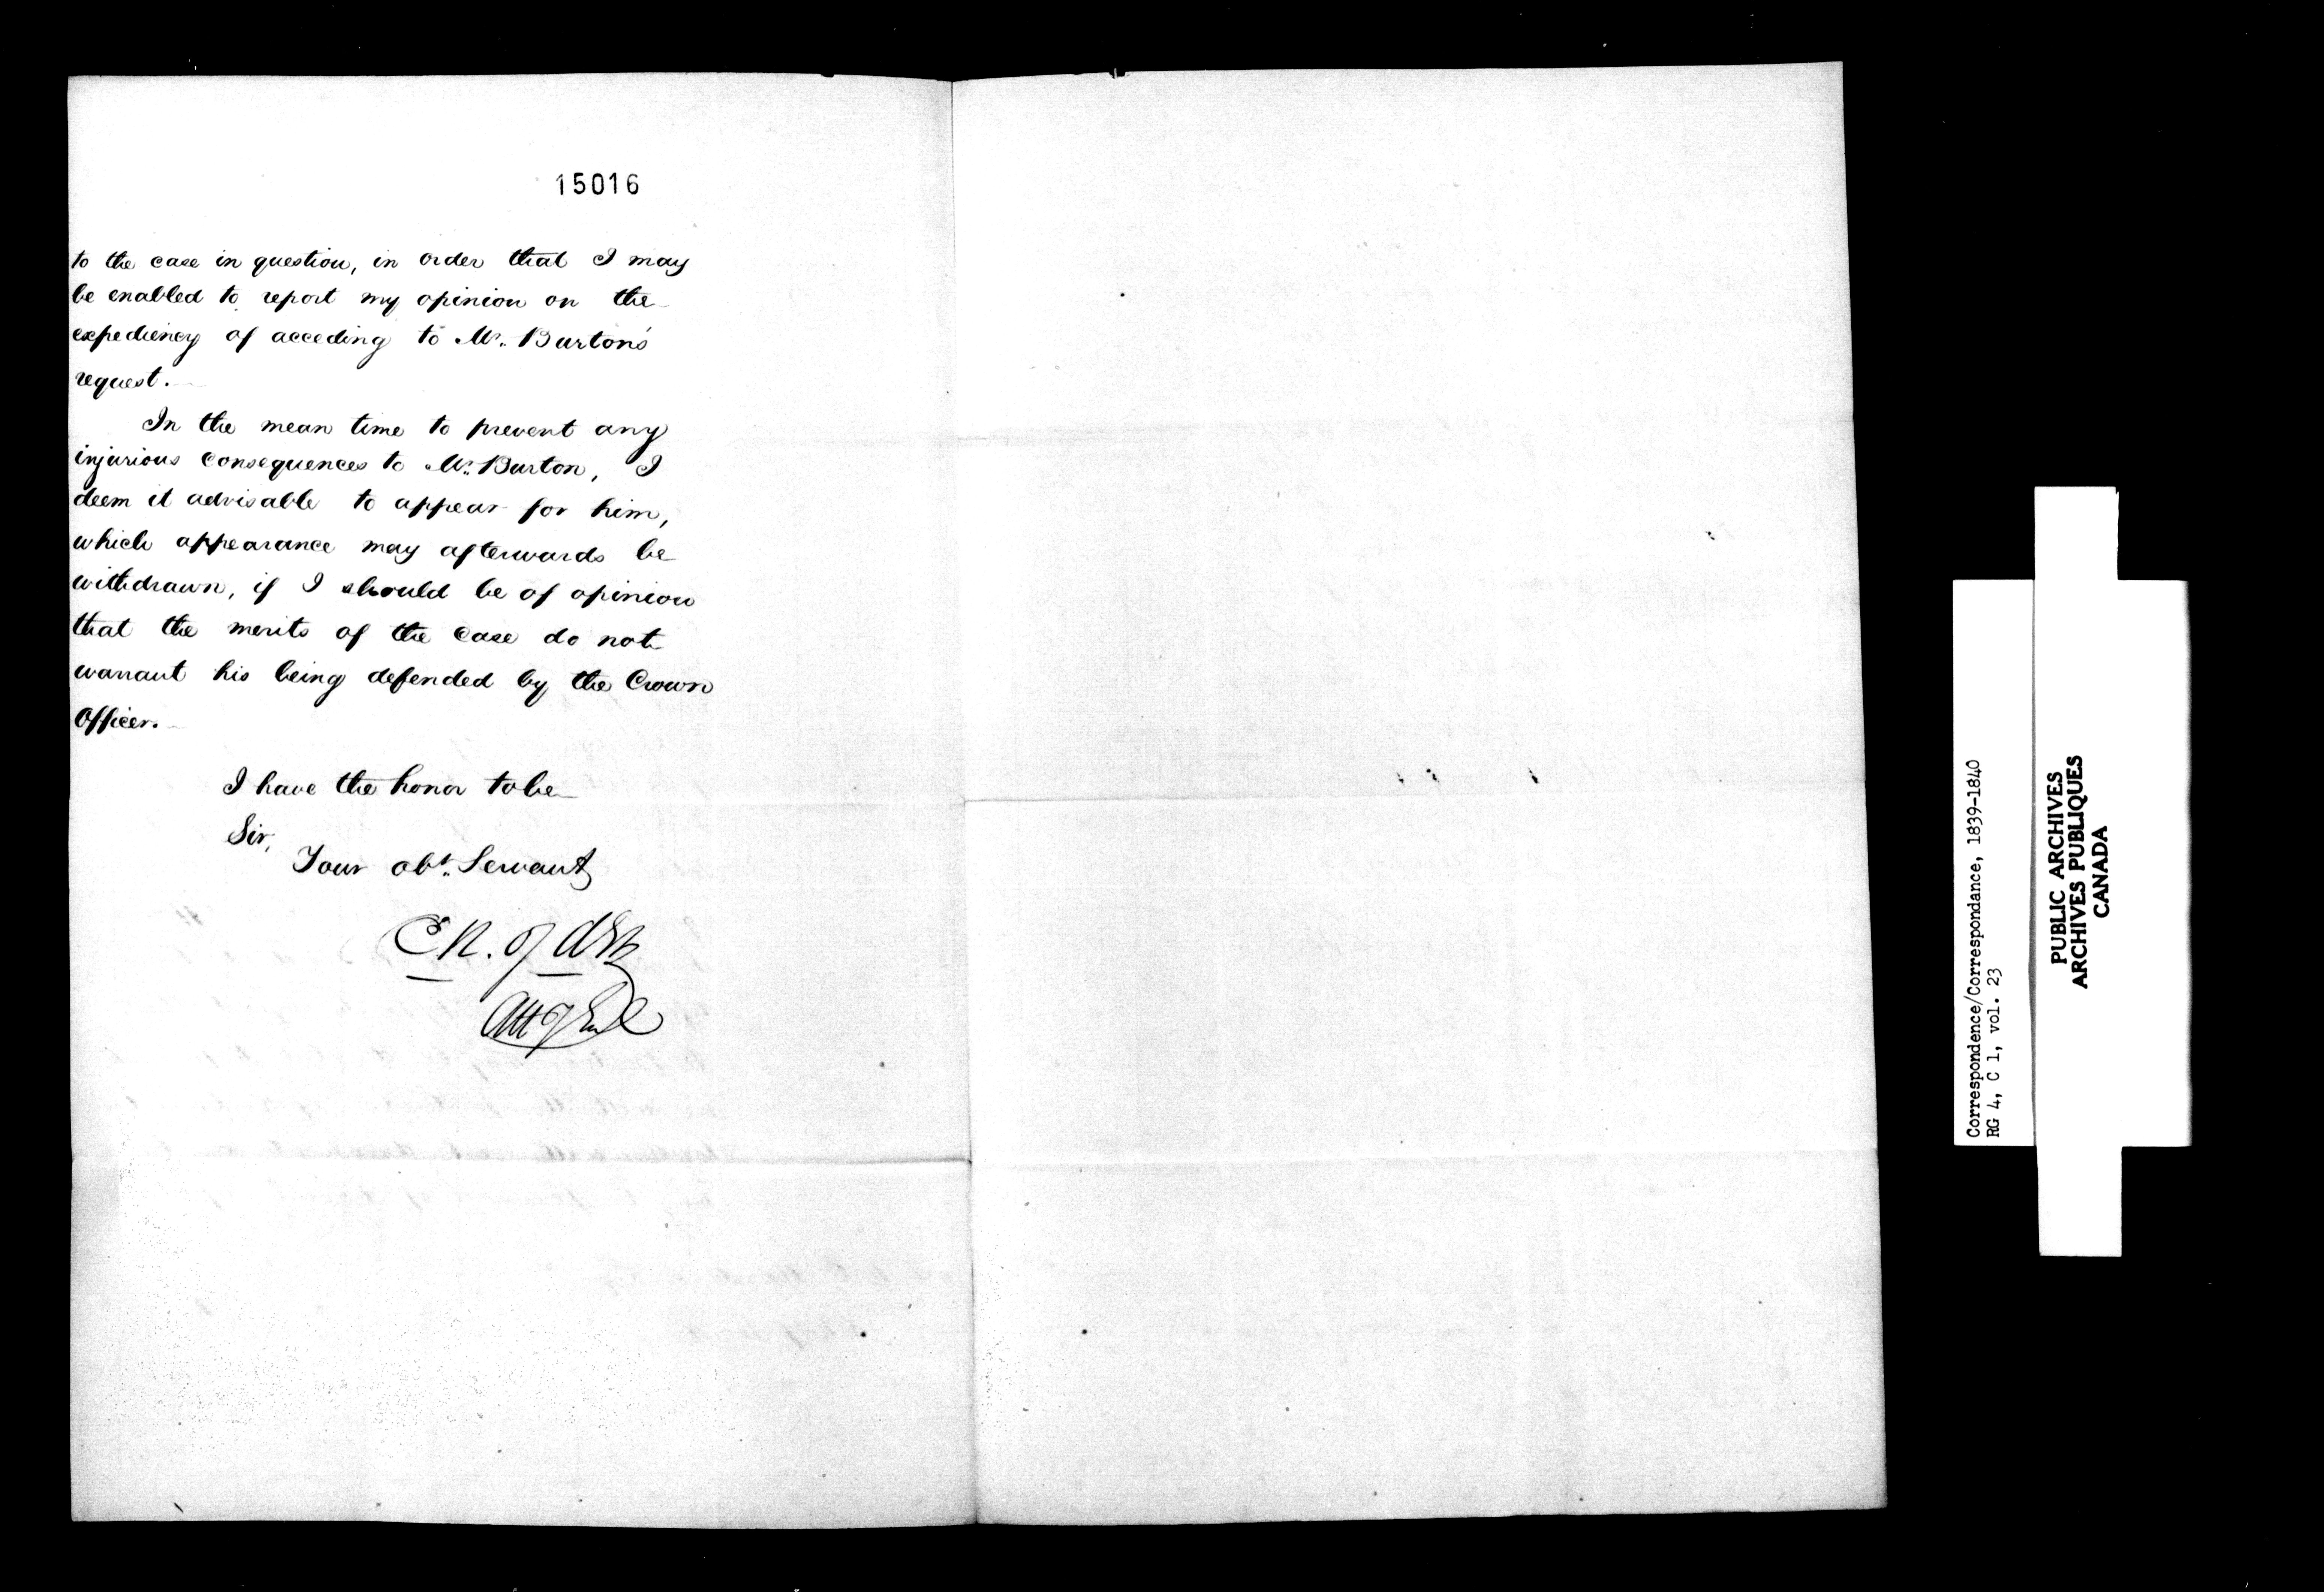 15016
to the case in question, in order that I may
be enabled to report my opinion on the
expediency of acceding to Mr. Burton's
request.
In the mean time to prevent any
injurious consequences to Mr. Burton, I
deem it advisable to appear for him,
which appearance may afterwards be
withdrawn, if I should be of opinion
that the merits of the case do not
warrant his being defended by the Crown
Officer.
I have the honor to be
Sir,
Your obt. Servant
Att Genl
Correspondence/Correspondance, 1839-1840
RG 4, C 1, vol. 23
PUBLIC ARCHIVES
ARCHIVES PUBLIQUES
CANADA